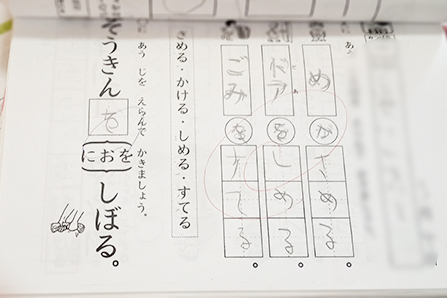 めがさめる。
ドアをしめる。
ごみをすてる。
さめる・かける・しめる・すてる
に あう じを えらんで かきましょう。
ぞうきんを{をおに}しぼる。